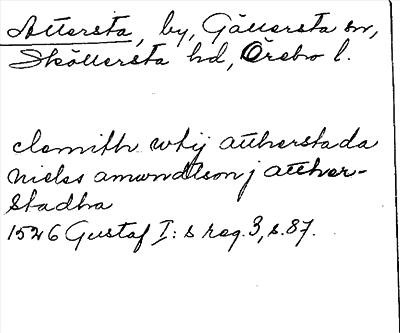 Attersta, by, Gällersta sn,
Sköllersta hd, Örebro l.
clemith wtij attherstada
Nieles amundtson j atther-
stadha
1526 Gustaf I:s reg. 3, s. 87.